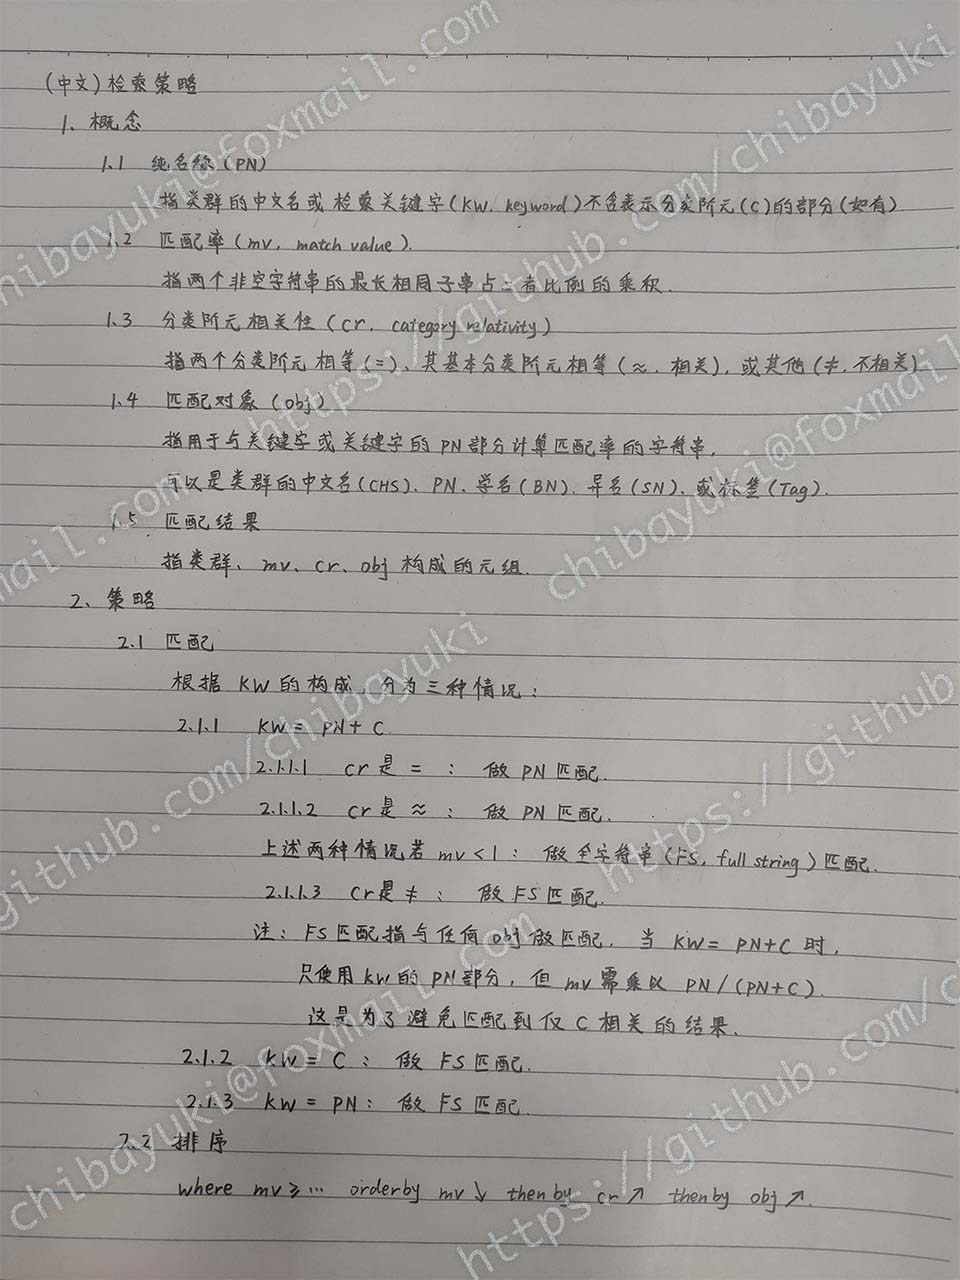 (中文)检索策略
1、概念
1.1 纯名称(PN)
指类群的中文名或检索关键字(KW, keyword)不含表示分类阶元(C)的部分(如有)
1.2 匹配率(mv, match value).
指两个非空字符串的最长相同子串占二者比例的乘积.
1.3 分类阶元相关性(cr, category relativity)
指两个分类阶元相等(=)、其基本分类阶元相等(≈, 相关), 或其他(≠, 不相关)
1.4 匹配对象(obj)
指用于与关键字或关键字的PN部分计算匹配率的字符串,
可以是类群的中文名(CHS)、PN、学名(BN)、异名(SN)、或标签(Tag).
1.5 匹配结果
指类群、mv、cr、obj构成的元组.
2、策略
2.1 匹配
根据KW的构成,分为三种情况:
2.1.1 KW = PN+C
2.1.1.1 cr是 = : 做PN匹配.
2.1.1.2 cr是 ≈ : 做PN匹配.
上述两种情况若mv<1: 做全字符串(FS, full string)匹配.
2.1.1.3 cr是 ≠ : 做FS匹配.
注: FS匹配指与任何obj做匹配. 当KW = PN+C时,
只使用KW的PN部分, 但mv需乘以PN/(PN+C).
这是为了避免匹配到仅C相关的结果.
2.1.2 KW = C: 做FS匹配.
2.1.3 KW = PN: 做FS匹配.
2.2 排序
where mv≥… orderby mv↘ thenby cr↗ thenby obj↗.
https://github.com/chibayuki
chibayuki@foxmail.com